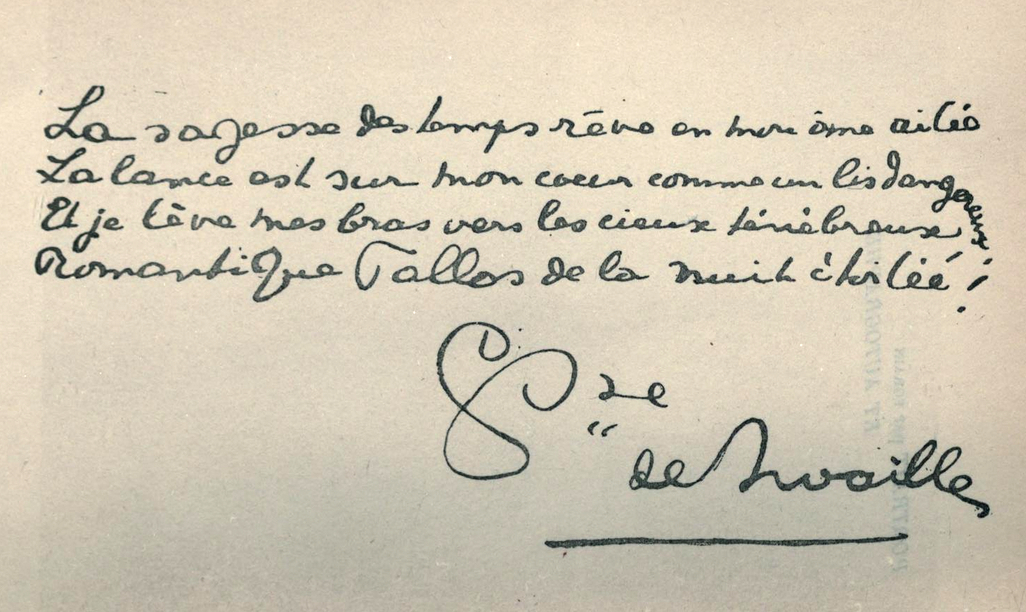 La sagesse des temps rêve en mon âme ailée
La lance est sur mon coeur comme un lis dangereux
Et je lève mes bras vers les cieux ténébreux
Romantique Pallas de la nuit étoilée !
Csse
de Noailles
ET AUTOGRA